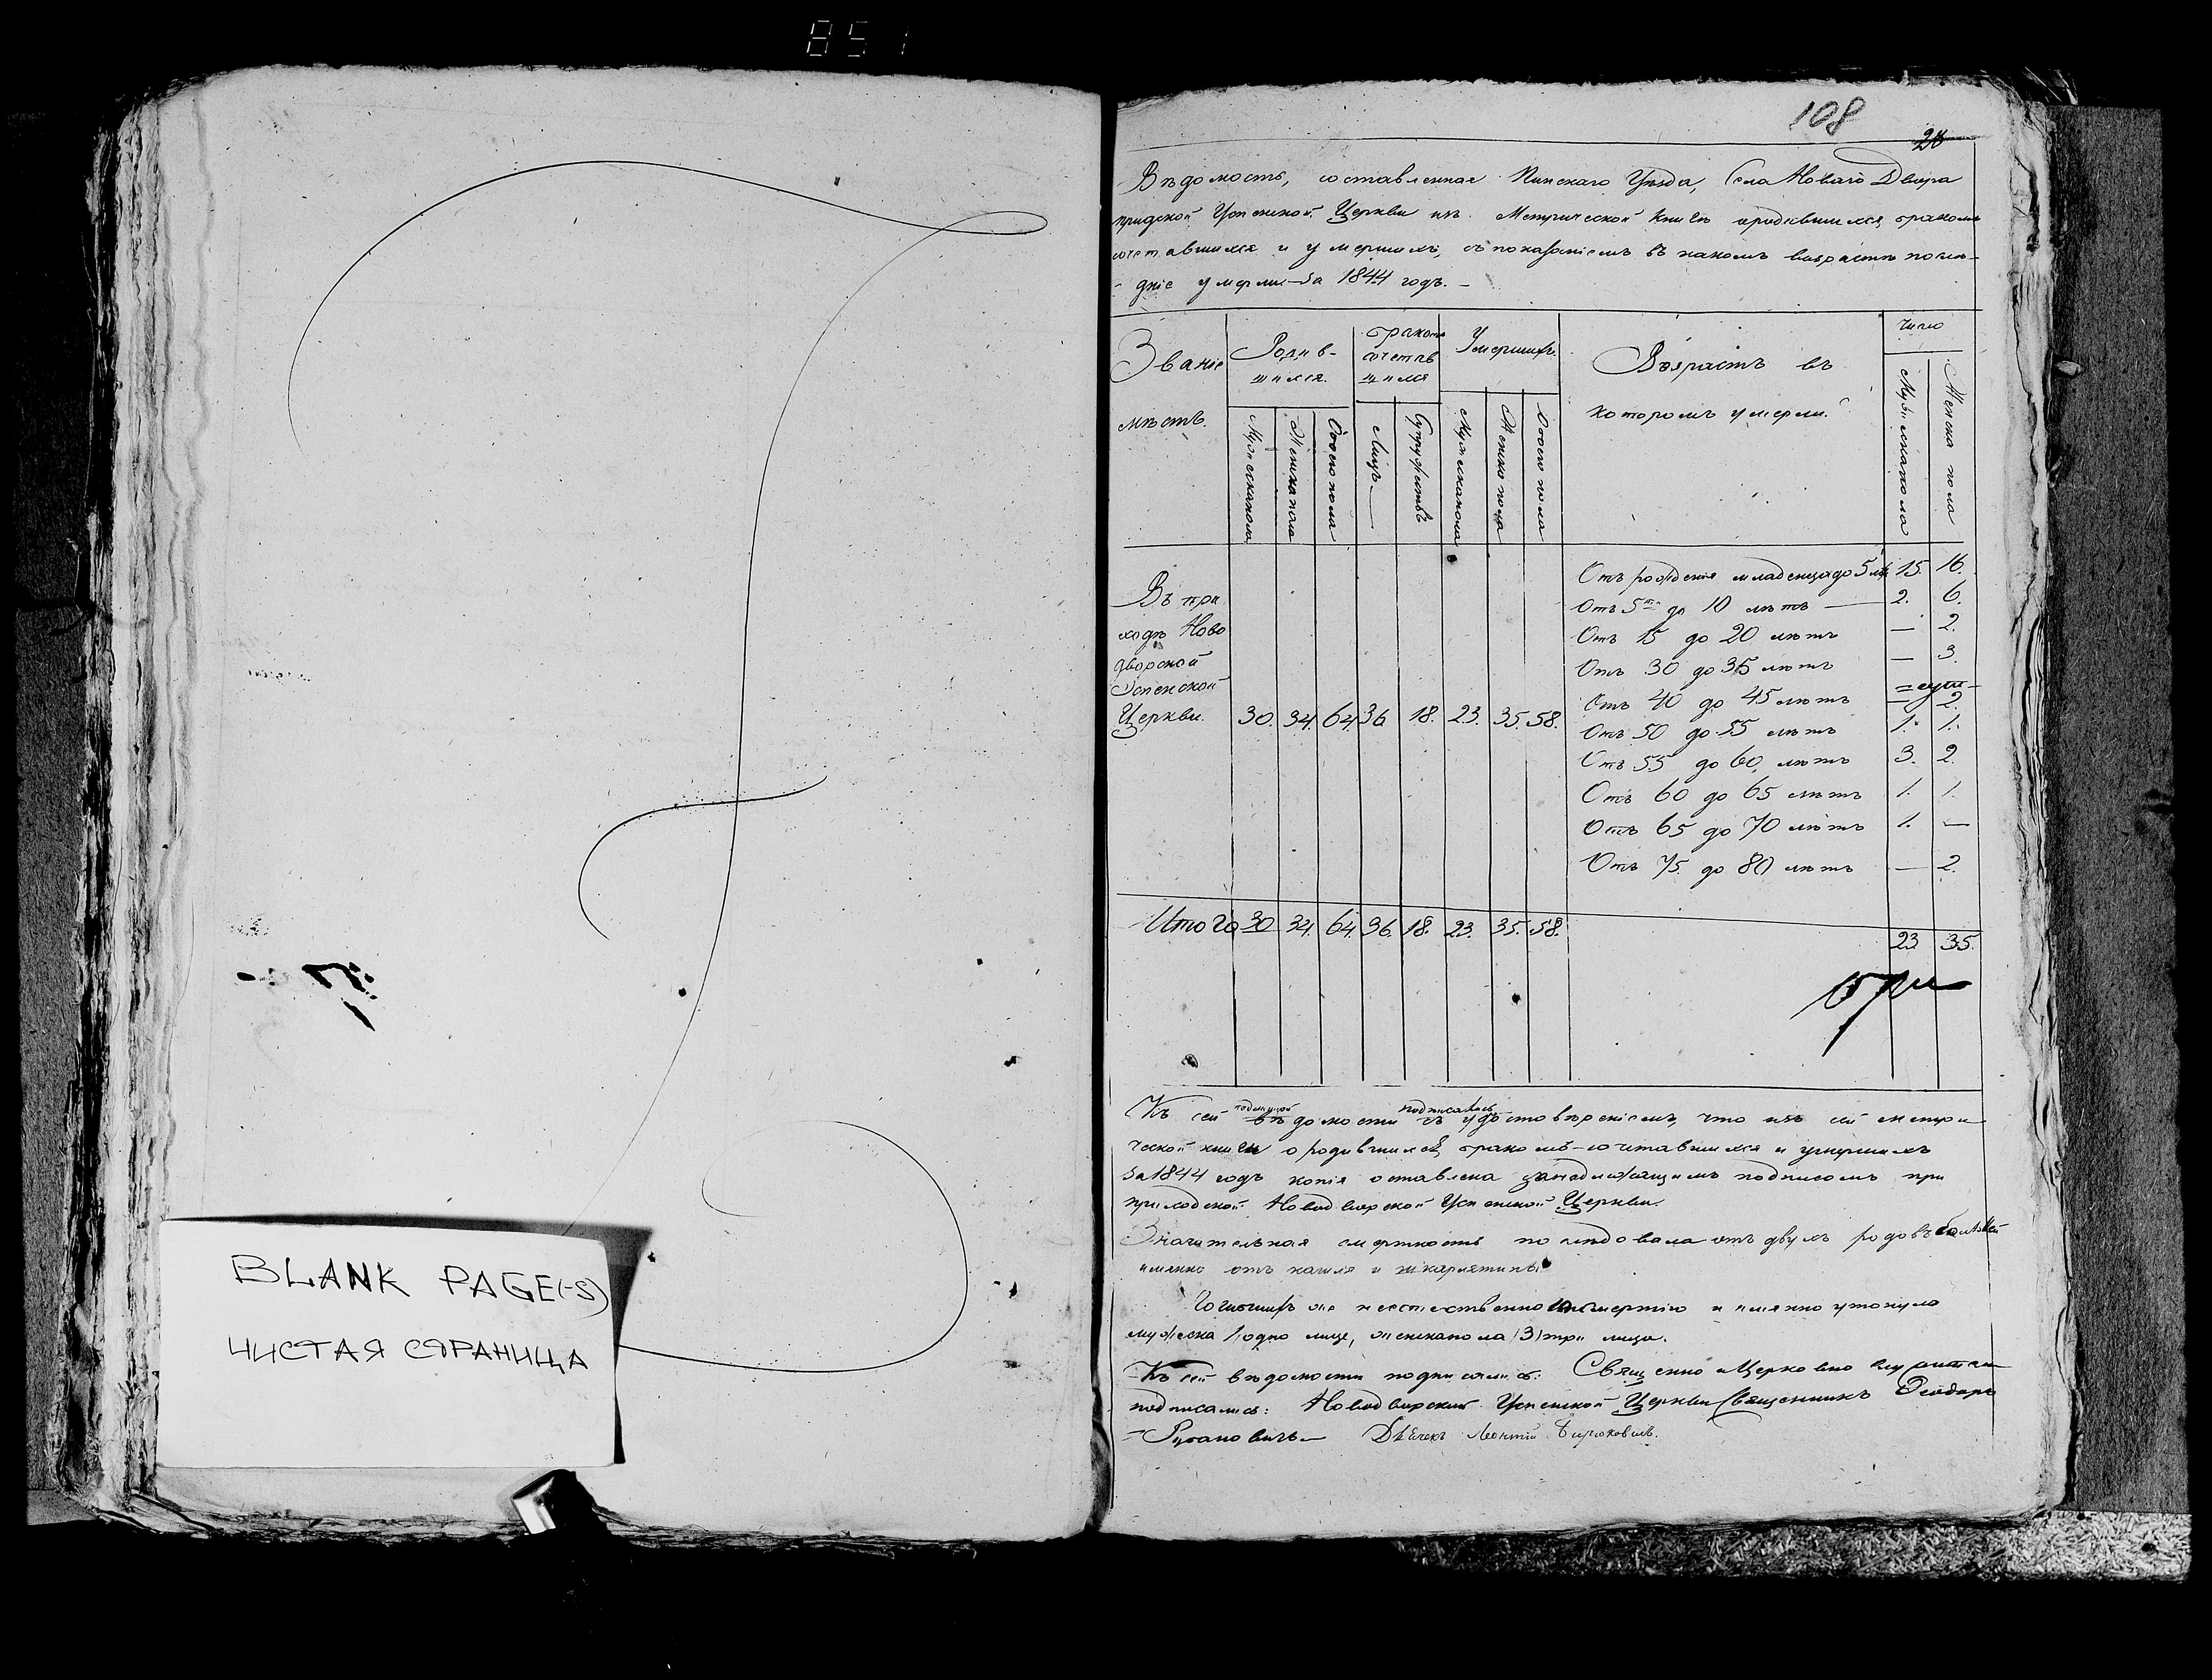 851
BLANK PAGE(-S)
ЧИСТАЯ СТРАНИЦА
108
28
Вѣдомость, составленная Пинскаго Уѣзда, Села Новаго Двора
Успенской Церкви изъ Метрической книги бракомъ
сочетавшихся и умершихъ, съ показаніемъ въ какомъ возрастѣ послѣ-
дніе умерли за 1844 годъ. -
Званіе
мѣстъ.
Родив-
шихся.
Мужеска пола
Женска пола
Обоего пола
бракомъ
сочетав
шихся
Лицъ
Супружествъ
Умершихъ.
Мужеска пола
Женска пола
Обоего пола
Возрастъ въ
которомъ умерли.
Число
Мужеска пола
Женска пола
Въ при
ходѣ Ново
дворской
Успенской
Церкви. 30. 34. 64. 36 18. 23. 35. 58.
Отъ рожденія младенца до 5 лѣтъ 15. 16.
Отъ 5ти до 10 лѣтъ — 2. 6.
Отъ 15 до 20 лѣтъ — 2.
Отъ 30 до 35 лѣтъ — 3.
Отъ 40 до 45 лѣтъ — 2.
Отъ 50 до 55 лѣтъ 1. 1.
Отъ 55 до 60 лѣтъ 3. 2.
Отъ 60 до 65 лѣтъ 1. 1.
Отъ 65 до 70 лѣтъ 1. —
Отъ 75 до 80 лѣтъ — 2.
Итого 30 34. 64. 36. 18. 23. 35. 58.
23 35.
Къ сей вѣдомости удостовѣреніемъ, что изъ сей метри
ческой книги о родившихся, бракомъ-сочетавшихся и умершихъ
за 1844 годъ копія оставлена за надлежащимъ подписомъ при
приходской Новодворской Успенской Церкви.
Значительная смертность послѣдовала отъ двухъ родовъ болѣзней
именно отъ кашля и шкарлятины
неестественною смертію и именно утонуло
мужеска 1 одно лице, женска пола /3/ три лица.
Къ сей вѣдомости подписались: Священно и Церковно служители
подписались: Новодворской Успенской Церкви Священникъ Ѳеодоръ
Дьячекъ Леонтій